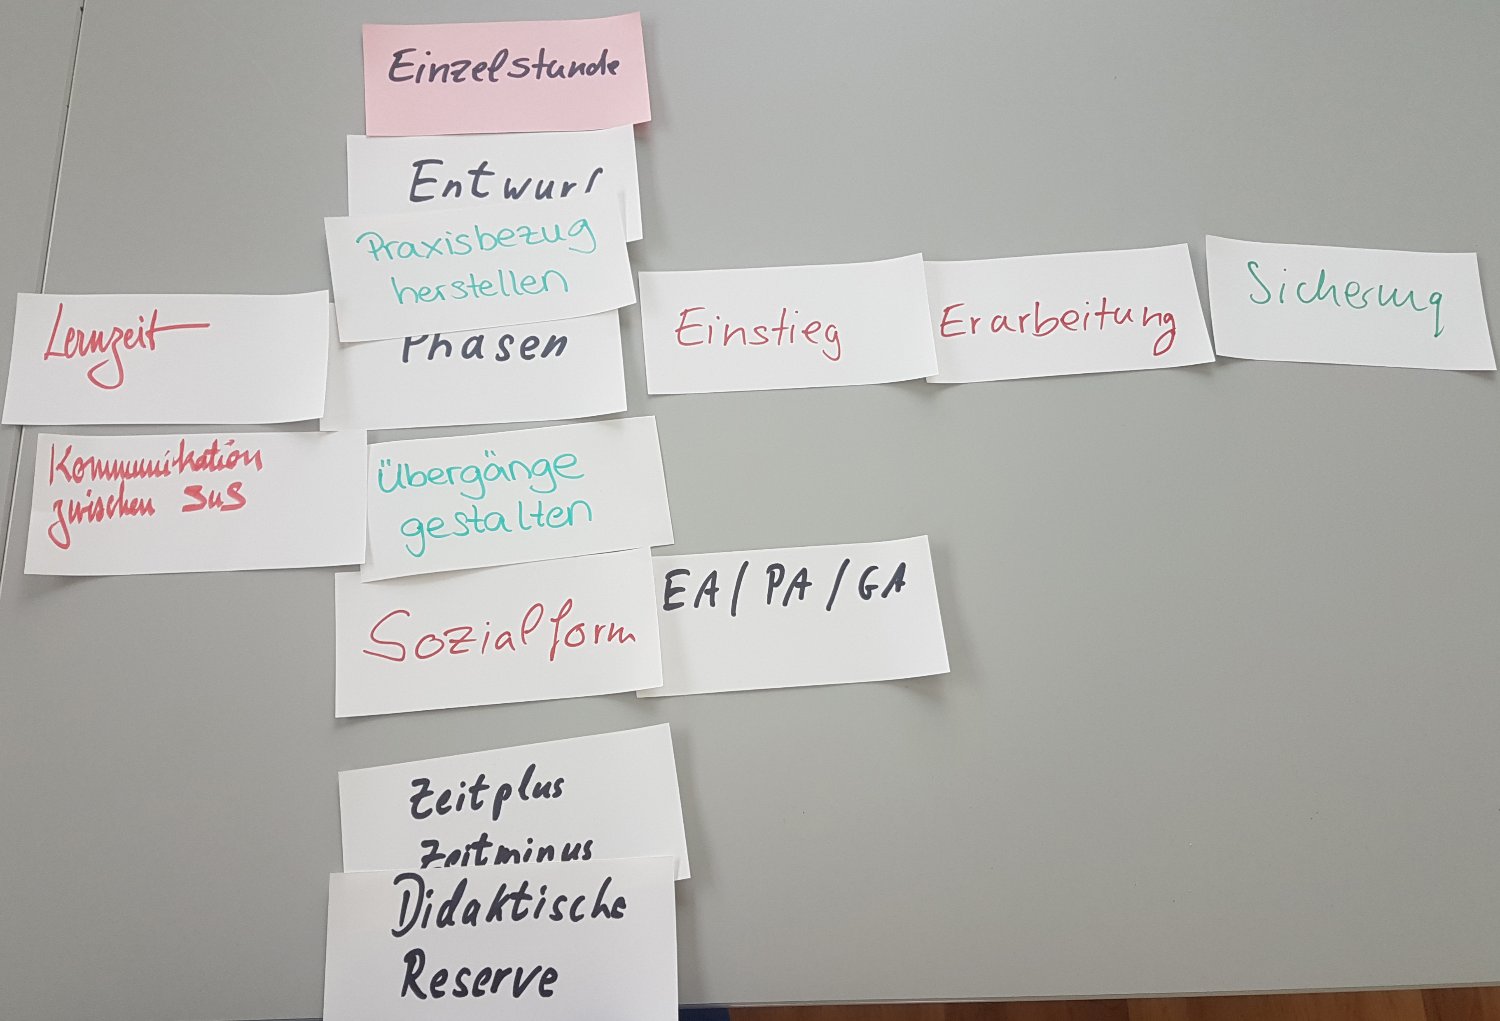 Einzelstunde
Entwurf
Praxisbezug
herstellen
Lernzeit
Phasen
Einstieg
Erarbeitung
Sicherung
Kommunikation
zwischen SuS
Übergänge
gestalten
Sozialform
EA / PA / GA
Zeitplus
Zeitminus
Didaktische
Reserve